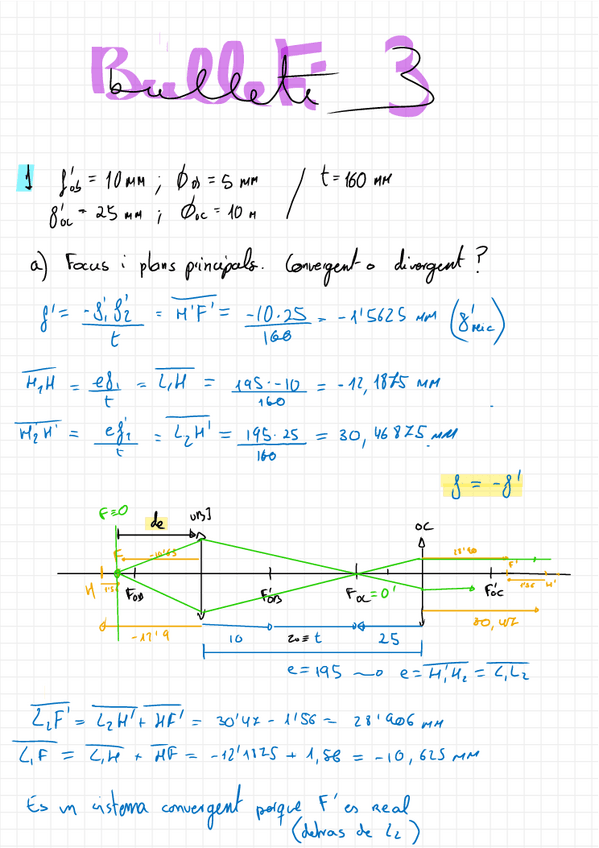 Bulletí 3
1 f'ob = 10 mm ; Φob = 5 mm / t = 160 mm
f'oc = 25 mm ; Φoc = 10 m
a) Focus i plans principals. Convergent o divergent ?
f' = -f'1 f'2 / t = H'F' = -10·25 / 160 = -1'5625 mm (f'mic)
H1H = ef1 / t = L1H = 195·-10 / 160 = -12,1875 mm
H2'H' = ef'2 / t = L2H' = 195·25 / 160 = 30,46875 mm
f = -f'
F≡O de OBJ OC
F -10'63 28'90 F'
H 1'56 FOB F'OB FOC = O' F'OC 1'56 H'
-12'9 10 20 ≡ t 25 30,47
e = 195 → e = H1'H2 = L1L2
L2F' = L2H' + HF' = 30'47 - 1'56 = 28'906 mm
L1F = L1H + HF = -12'1875 + 1,56 = -10,625 mm
Es un sistema convergent porque F' es real
(detras de L2)